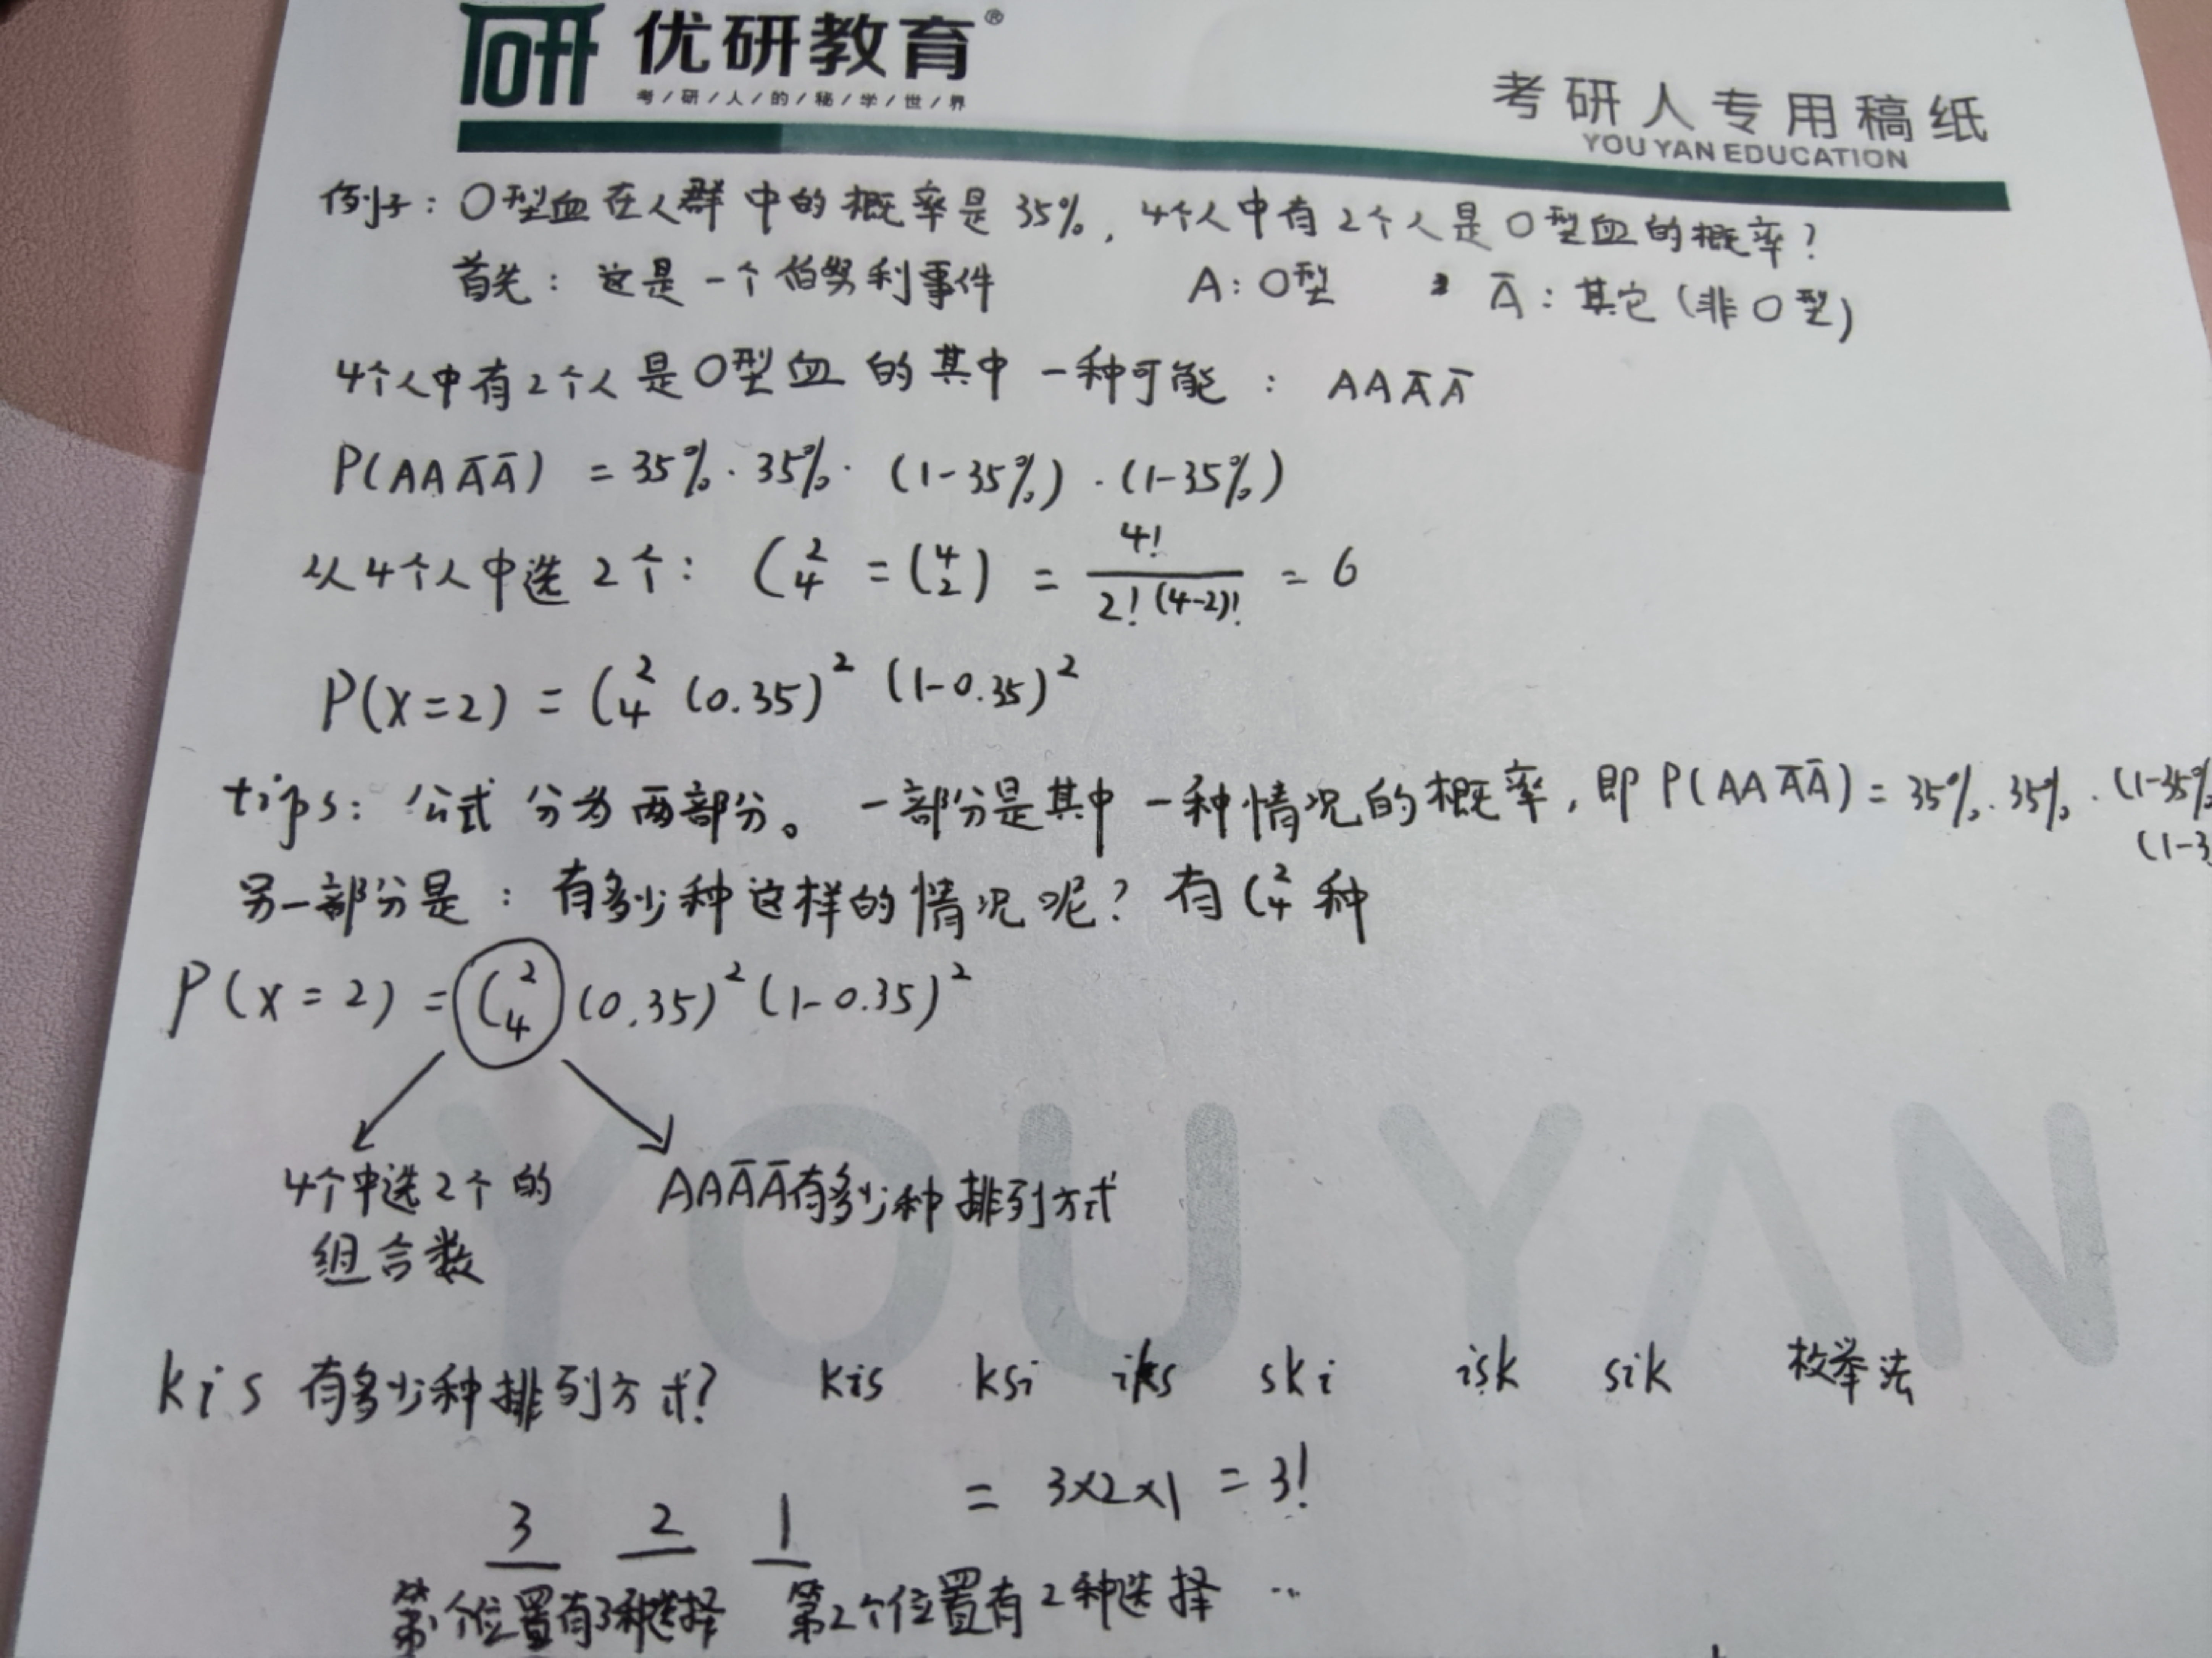 研 优研教育®
考/研/人/的/秘/学/世/界
考研人专用稿纸
YOU YAN EDUCATION
例子：O型血在人群中的概率是35%，4个人中有2个人是O型血的概率？
首先：这是一个伯努利事件 A：O型 Ā：其它（非O型）
4个人中有2个人是O型血的其中一种可能：AAĀĀ
P(AAĀĀ) = 35%·35%·(1-35%)·(1-35%)
从4个人中选2个：C₄² = (4 2) = 4!/2!(4-2)! = 6
P(X=2) = C₄² (0.35)² (1-0.35)²
tips：公式分为两部分。一部分是其中一种情况的概率，即P(AAĀĀ) = 35%·35%·(1-35%
(1-3
另一部分是：有多少种这样的情况呢？有C₄²种
P(X=2) = C₄² (0.35)² (1-0.35)²
4个中选2个的
组合数
AAĀĀ有多少种排列方式
YOU YAN
kis有多少种排列方式？ kis ksi iks ski isk sik 枚举法
3 2 1 = 3×2×1 = 3!
第1个位置有3种选择 第2个位置有2种选择 …